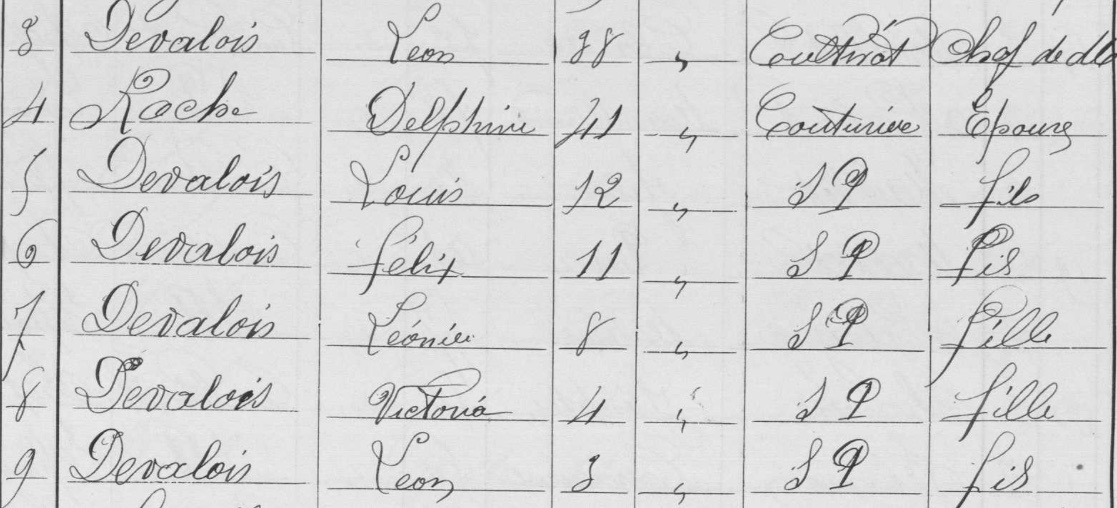 3 Devalois Leon 38 " Cultivat Chef de
4 Roche Delphine 41 " Couturiere Epouse
5 Devalois Louis 12 " S P fils
6 Devalois félix 11 " S P Fis
7 Devalois Léonie 8 " S P fille
8 Devalois Victoria 4 " S P fille
9 Devalois Leon 3 " S P fis